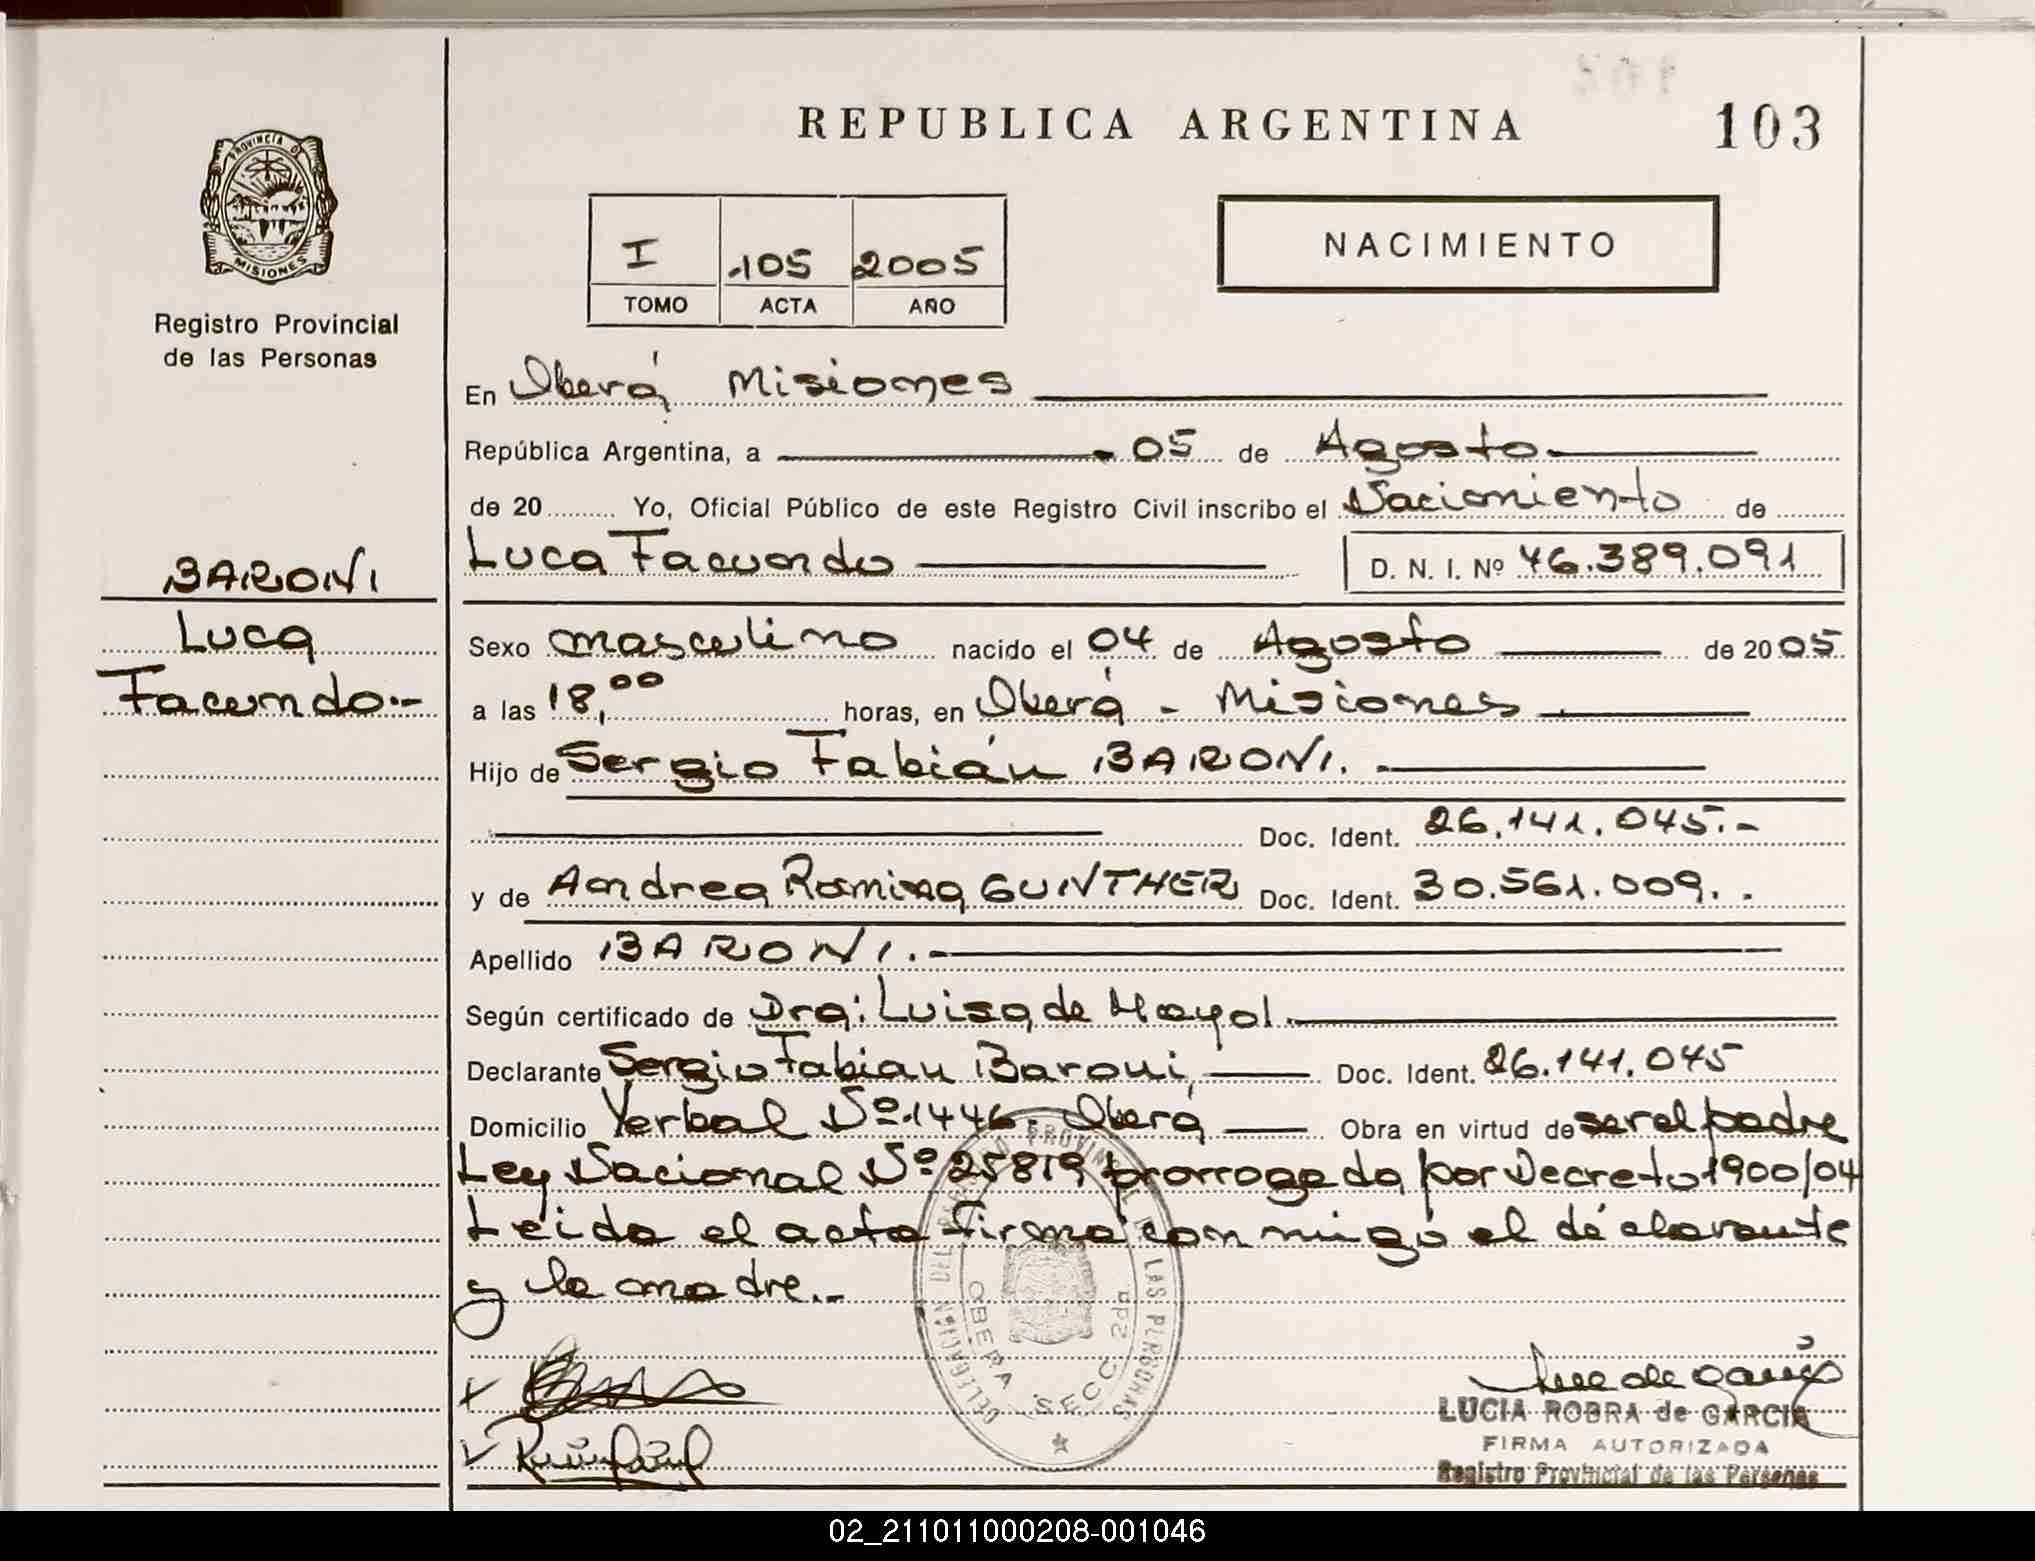 REPUBLICA ARGENTINA
103
PROVINCIA DE
MISIONES
Registro Provincial
de las Personas
I .105 2005
TOMO ACTA AÑO
NACIMIENTO
En Oberá Misiones
República Argentina, a 05 de Agosto
de 20 ......... Yo, Oficial Público de este Registro Civil inscribo el Nacimiento de
Luca Facundo D. N. I. Nº 46.389.091
BARONI
Luca
Facundo.-
Sexo masculino nacido el 04 de Agosto de 2005
a las 18,00 horas, en Oberá - Misiones
Hijo de Sergio Fabián BARONI.
Doc. Ident. 26.141.045.-
y de Andrea Romina GUNTHER Doc. Ident. 30.561.009. .
Apellido BARONI.-
Según certificado de Dra: Luisa de Mayol.
Declarante Sergio Fabian Baroni, Doc. Ident. 26.141.045
Domicilio Yerbal Nº 1446. Oberá Obra en virtud de ser el padre
Ley Nacional Nº 25819 prorrogada por Decreto 1900/04
Leida el acta firma conmigo el declarante
y la madre.-
DELEGACION DEL REGISTRO PROVINCIAL DE LAS PERSONAS
OBERA SECC 2da
LUCIA ROBRA de GARCIA
FIRMA AUTORIZADA
Registro Provincial de las Personas
02_211011000208-001046